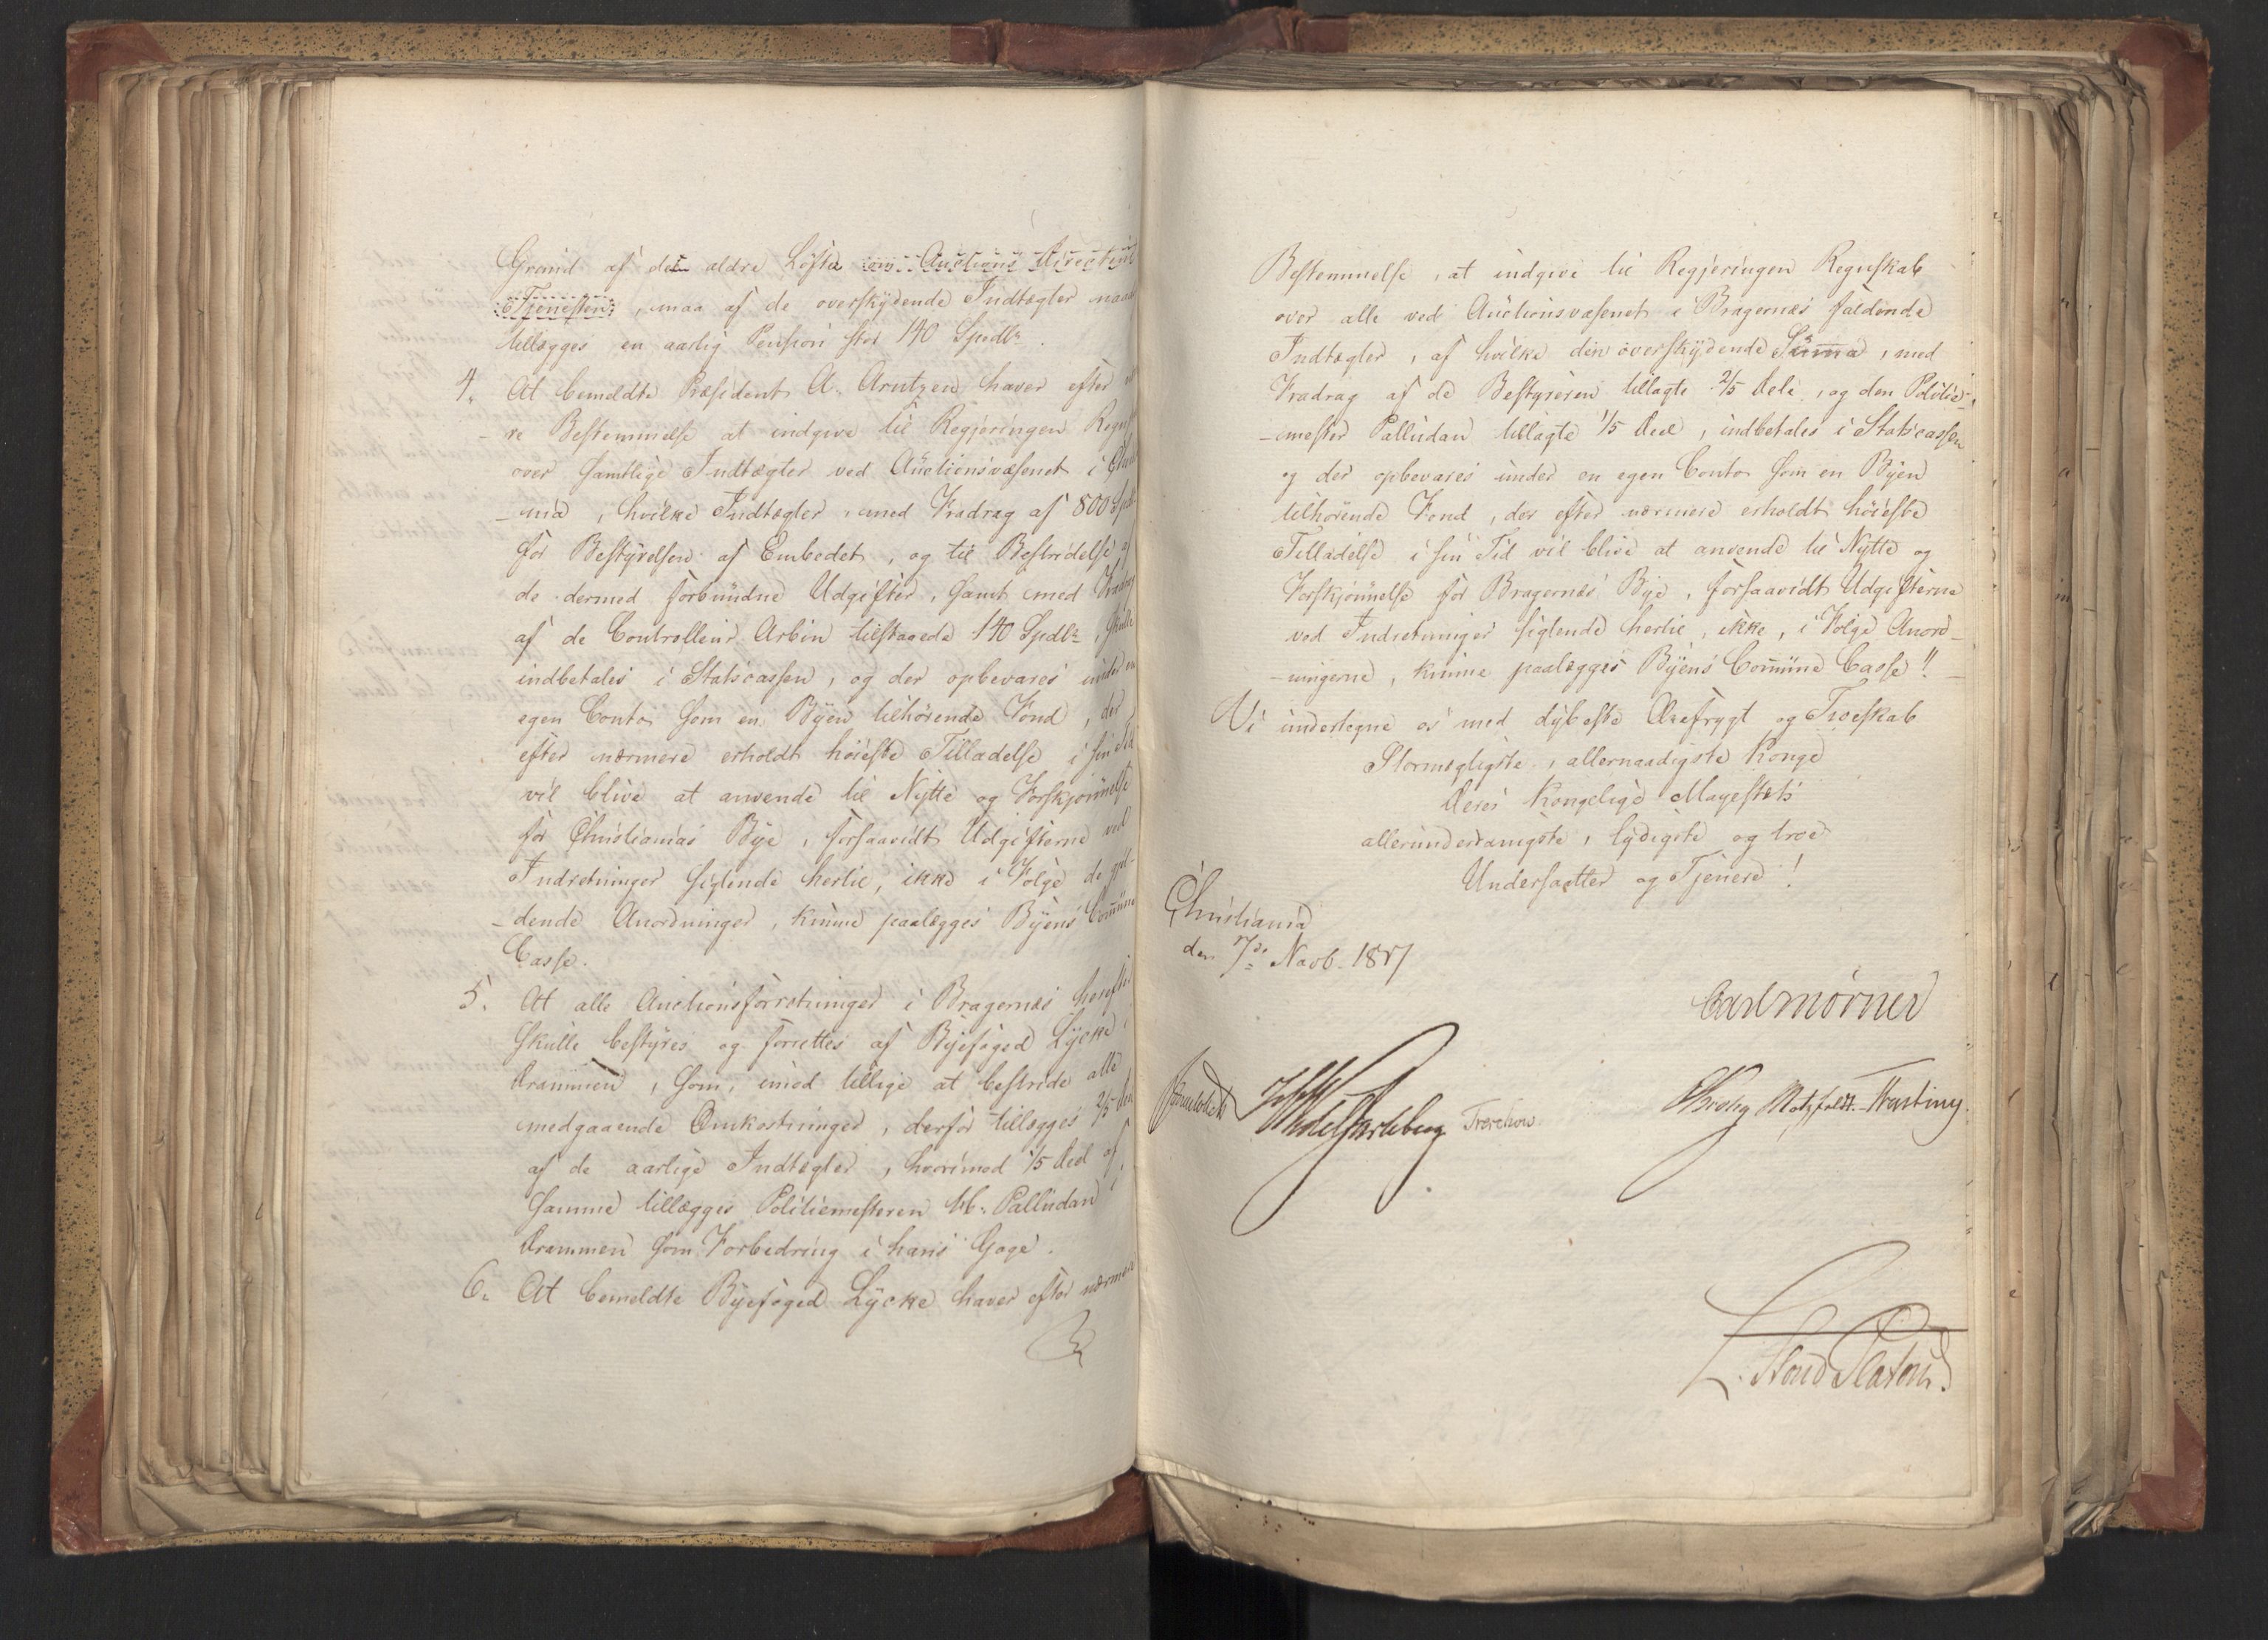 Grund af det ældre Løfte om Auctions Directeur
Tjenesten, maa af de overskydende Indtægter naad
tillægges en aarlig Pension stor 140 Spdlr.
4. At bemeldte Præsident A. Arntzen haver efter
-re Bestemmelse at indgive til Regjeringen Regnsk
over samtlige Indtægter ved Auctionsvæsenet i Christi
-ania, hvilke Indtægter, med Fradrag af 800 Spdlr
for Bestyrelsen af Embedet, og til Bestridelse af
de dermed forbundne Udgifter, samt med Fradrag
af de Controlleur Arbin tilstaaede 140 Spdlr, skulle
indbetales i Statscassen, og der opbevares under en
egen Conto som en Byen tilhørende Fond, der
efter nærmere erholdt høieste Tilladelse i sin Tid
vil blive at anvende til Nytte og Forskjønnelse
for Christianias Bye, forsaavidt Udgifterne ved
Indretninger sigtende hertil, ikke i Følge de gjel-
-dende Anordninger, kunne paalægges Byens Com̅une
Casse.
5. At alle Auctionsforretninger i Bragernæs herefter
skulle bestyres og forrettes af Byefoged Lycke i
Drammen, som, imod tillige at bestride alle
medgaaende Omkostninger, derfor tillægges 2/5 Dele
af de aarlige Indtægter, hvorimod 1/5 Deel af
samme tillægges Politiemesteren M. Palludan i
Drammen som Forbedring i hans Gage.
6. At bemeldte Byefoged Lycke haver efter nærmere
Bestemmelse, at indgive til Regjeringen Regnskab
over alle ved Auctionsvæsenet i Bragernæs faldende
Indtægter, af hvilke den overskydende Sum̅a, med
Fradrag af de Bestyreren tillagte 2/5 Dele, og den Politie-
-mester Palludan tillagte 1/5 Deel, indbetales i Statscassen
og der opbevares under en egen Conto som en Byen
tilhørende Fond, der efter nærmere erholdt høieste
Tilladelse i sin Tid vil blive at anvende til Nytte og
Forskjønnelse for Bragernæs Bye, forsaavidt Udgifterne
ved Indretninger sigtende hertil, ikke, i Følge Anord-
-ningerne, kunne paalægges Byens Com̅une Casse!!
Vi undertegne os med dybeste Ærefrygt og Troeskab
Stormægtigste, allernaadigste Konge
Deres Kongelige Mayestæts
allerunderdanigste, lydigste og troe
Undersaatter og Tjenere!
Christiania
den 7de Novb. 1817
Carl Mörner
Sommerhielm Wedel Jarlsberg Treschow.
Krohg Motzfeldt. Hasting.
L. von Platen.